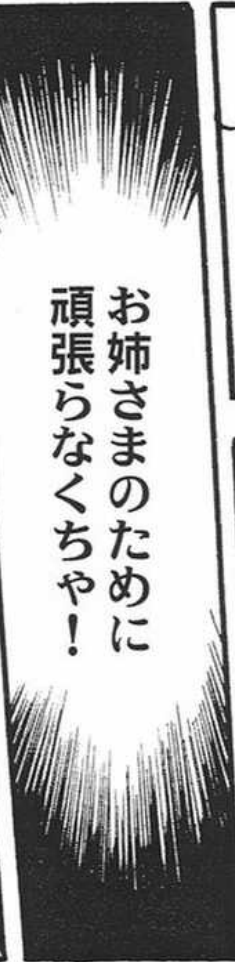 お姉さまのために
頑張らなくちゃ！